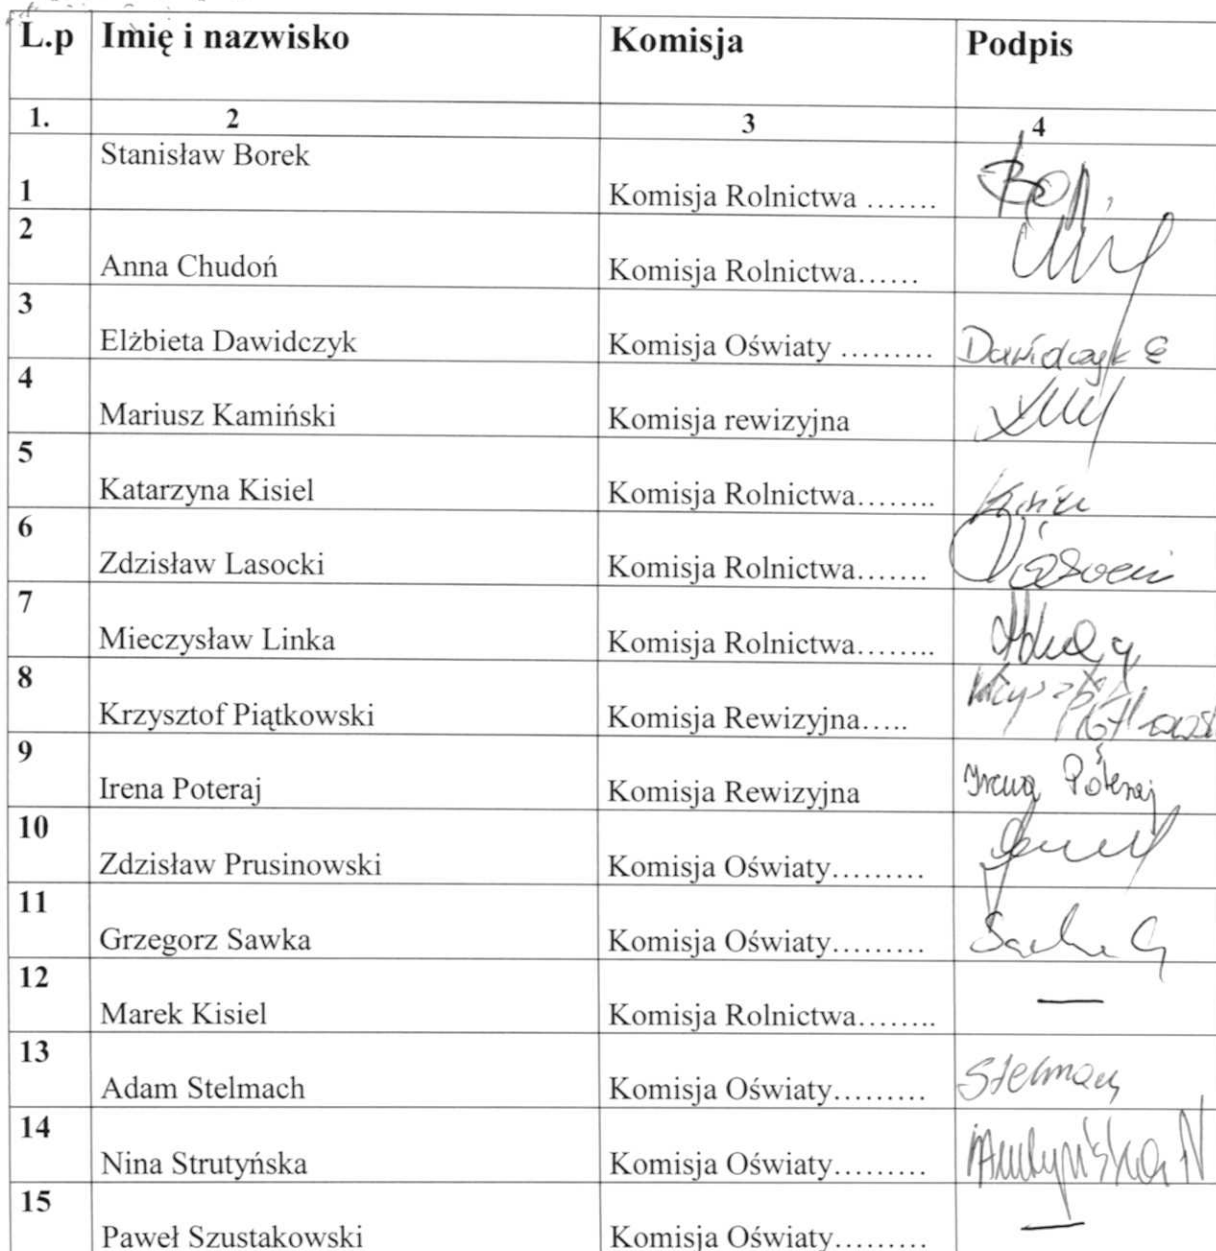 L.p Imię i nazwisko Komisja Podpis
1. 2 3 4
1 Stanisław Borek Komisja Rolnictwa .......
2 Anna Chudoń Komisja Rolnictwa......
3 Elżbieta Dawidczyk Komisja Oświaty ......... Dawidczyk E
4 Mariusz Kamiński Komisja rewizyjna
5 Katarzyna Kisiel Komisja Rolnictwa........ Kisiel
6 Zdzisław Lasocki Komisja Rolnictwa....... Lasocki
7 Mieczysław Linka Komisja Rolnictwa........
8 Krzysztof Piątkowski Komisja Rewizyjna..... Krzysztof Piątkowski
9 Irena Poteraj Komisja Rewizyjna Irena Póteraj
10 Zdzisław Prusinowski Komisja Oświaty.........
11 Grzegorz Sawka Komisja Oświaty......... Sawka G
12 Marek Kisiel Komisja Rolnictwa........ —
13 Adam Stelmach Komisja Oświaty......... Stelmach
14 Nina Strutyńska Komisja Oświaty......... Strutyńska N
15 Paweł Szustakowski Komisja Oświaty......... —